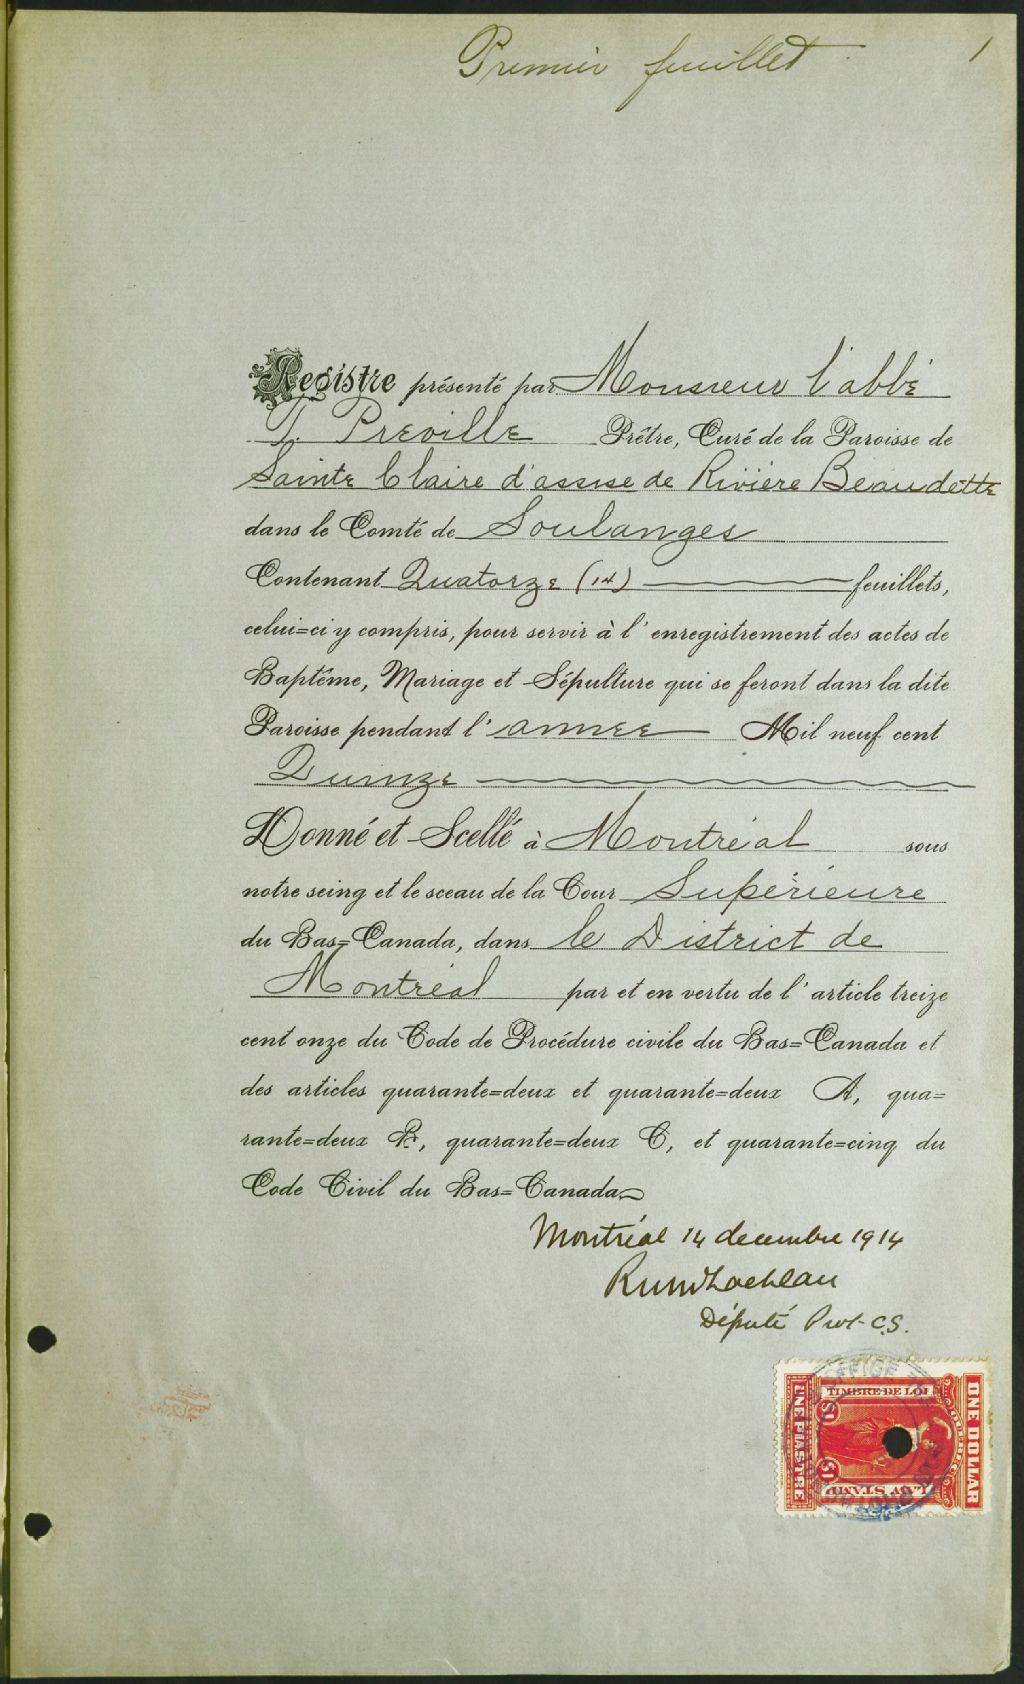 Premier feuillet 1
Registre présenté par Monsieur l'abbé
T. Preville Prêtre, Curé de la Paroisse de
Sainte Claire d'assise de Rivière Beaudette
dans le Comté de Soulanges
Contenant Quatorze (14) feuillets,
celui=ci y compris, pour servir à l'enregistrement des actes de
Baptême, Mariage et Sépulture qui se feront dans la dite
Paroisse pendant l'année Mil neuf cent
Quinze
Donné et Scellé à Montréal sous
notre seing et le sceau de la Cour Supérieure
du Bas=Canada, dans le District de
Montréal par et en vertu de l'article treize
cent onze du Code de Procédure civile du Bas=Canada et
des articles quarante=deux et quarante=deux A, qua=
rante=deux B, quarante=deux C, et quarante=cinq du
Code Civil du Bas=Canada
Montréal 14 decembre 1914
Député Prot. C.S.
TIMBRE DE LOI
ONE DOLLAR
UNE PIASTRE
$1
$1
LAW STAMP
QUEBEC
OFFICE